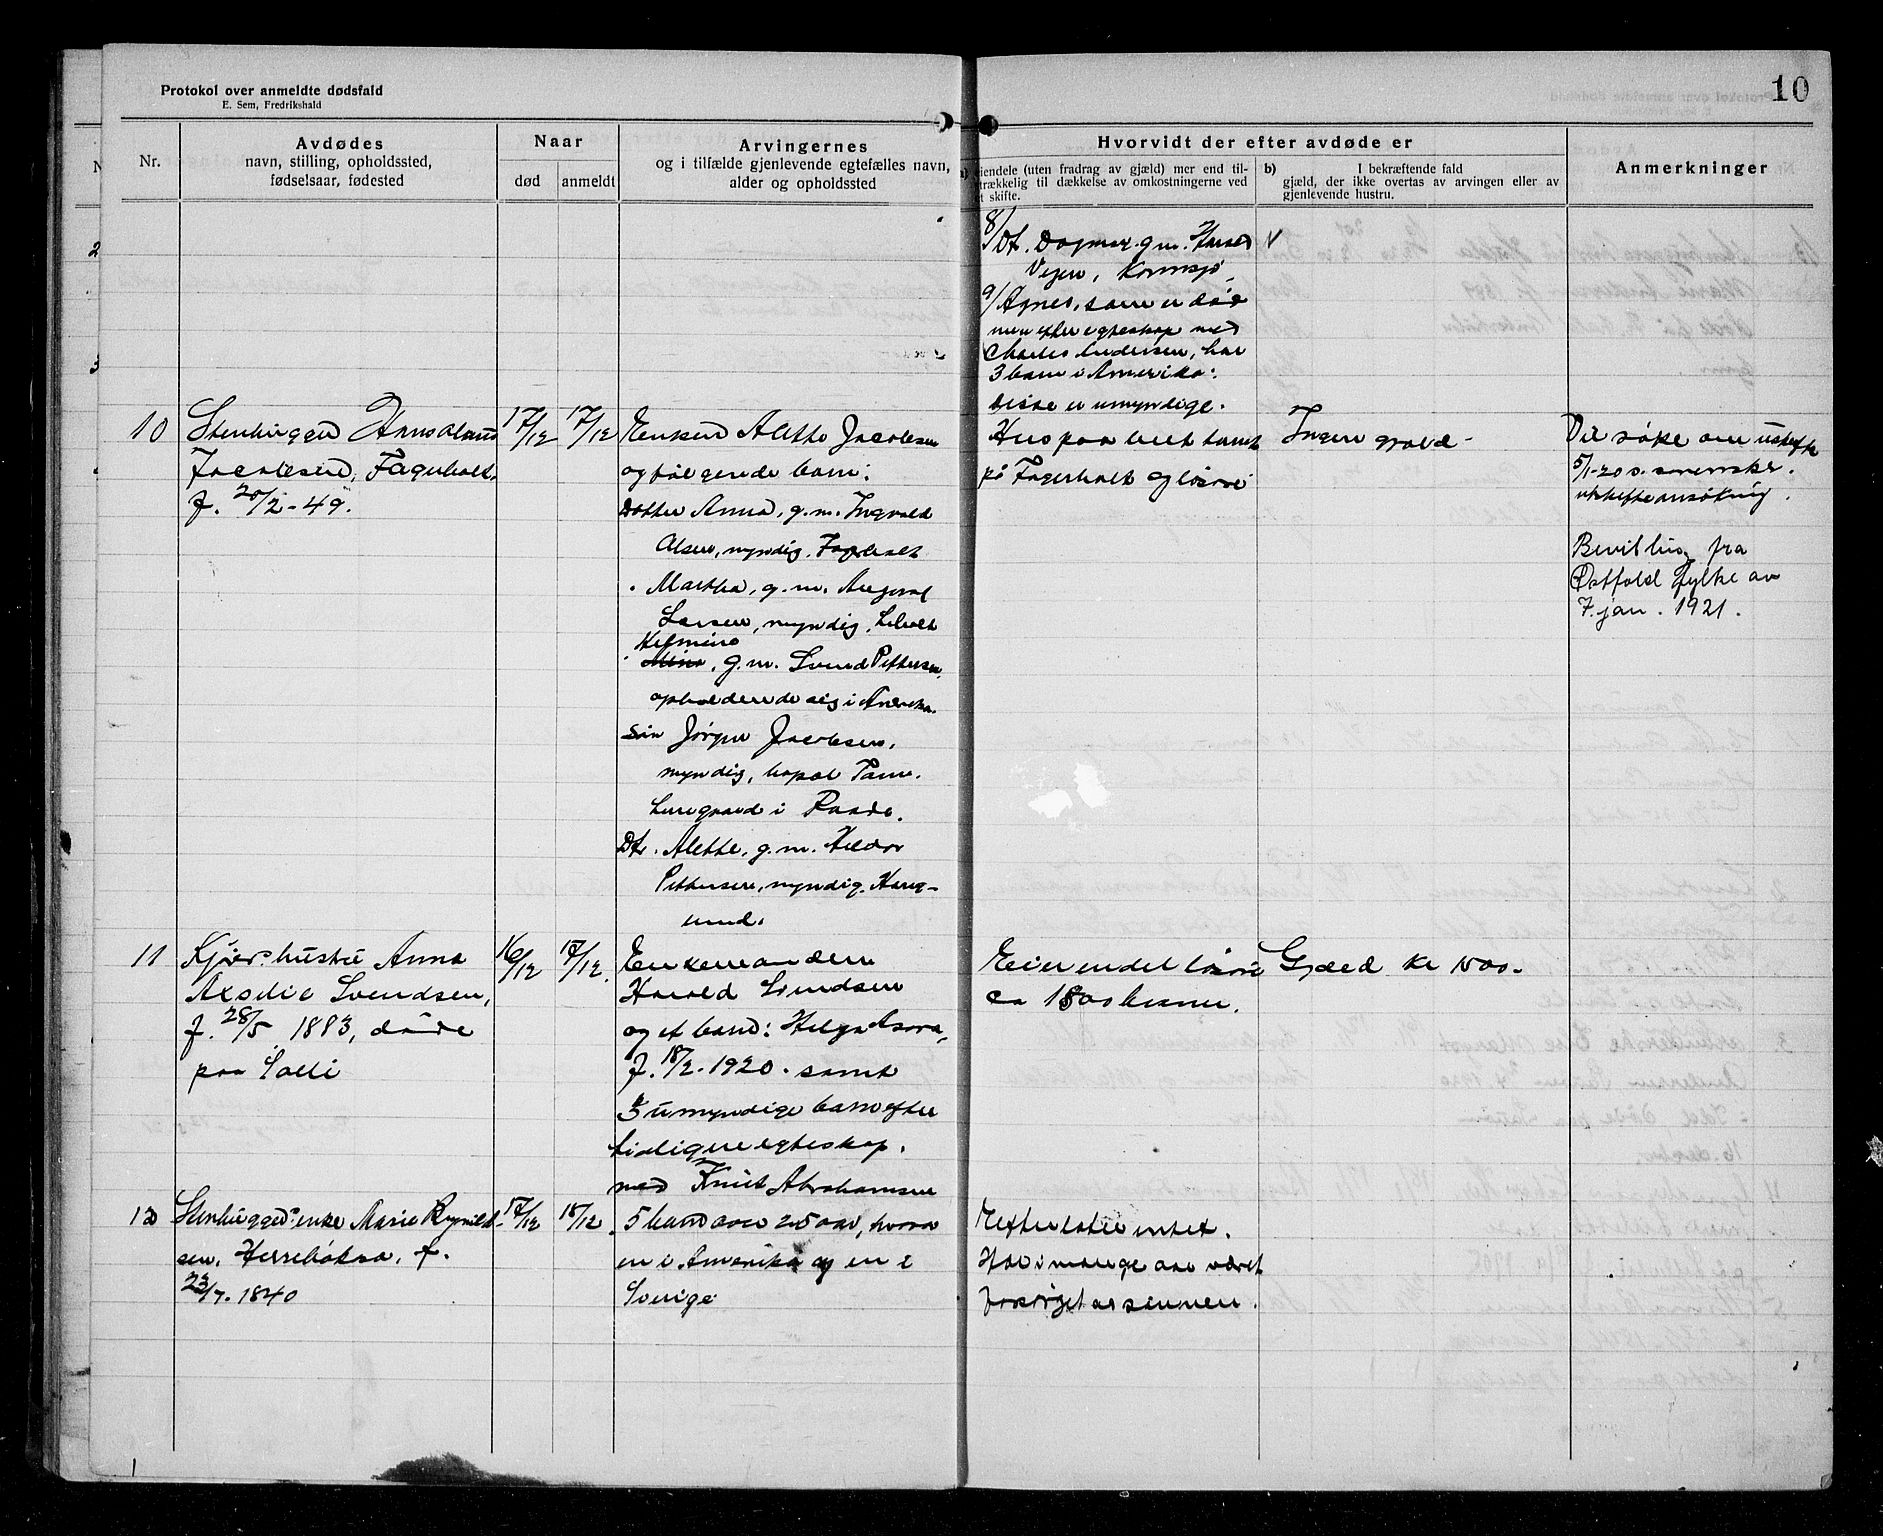 Protokol over anmeldte dødsfald
E. Sem, Fredrikshald
10
Nr.
Avdødes
navn, stilling, opholdssted,
fødselsaar, fødested
Naar
død
anmeldt
Arvingernes
og i tilfælde gjenlevende egtefælles navn,
alder og opholdssted
Hvorvidt der efter avdøde er
iendele (uten fradrag av gjæld) mer end til-
trækkelig til dækkelse av omkostningerne ved
t skifte.
b) I bekræftende fald
gjæld, der ikke overtas av arvingen eller av
gjenlevende hustru.
Anmerkninger
8/ Dt. Dagmar g.m.
Vejen, Kornsjø
9/ Agnes, som er død
men efter egteskap med
Charles Andersen, har
3 barn i Amerika.
disse er umyndige.
10
Stenhugger Hans
Jacobsen, Fagerholt,
f. 20/2-49.
17/12
17/12
Enken Alette Jacobsen
og følgende barn:
Datter Anna, g.m. Ingvald
Olsen, myndig, Fagerholt
" Martha, g.m.
Larsen, myndig,
Helmine
" Mina, g.m. Svend Pettersen,
opholdende sig i Amerika.
Søn Jørgen Jacobsen,
myndig, bopæl
i Raade.
Dtr. Alette, g.m.
Pettersen, myndig,
sund.
Hus paa leiet tomt
på Fagerholt og løsøre
Ingen gjæld
Vil søke om uskifte
5/1-20 s.
uskifteansøkning.
Bevilling fra
Østfold Fylke av
7. jan. 1921.
11
hustru Anna
Svendsen,
f. 28/5 1883, døde
paa
16/12
17/12.
Enkemanden
Harald Svendsen
og et barn: Helga
f. 18/2-1920. samt
5 umyndige barn efter
tidligere egteskap.
med Knut Abrahamsen
Eier endel løsøre
ca 1800 kroner.
Gjæld kr 1500.
12
Stenhugger enke Marie
sen, Herrebøkasa, f.
23/7.1840
17/12
18/12.
5 barn over 25 aar, hvorav
en i Amerika og en i
Sverige
Efterlater intet.
Har i mange aar været
forsørget av sønnen.